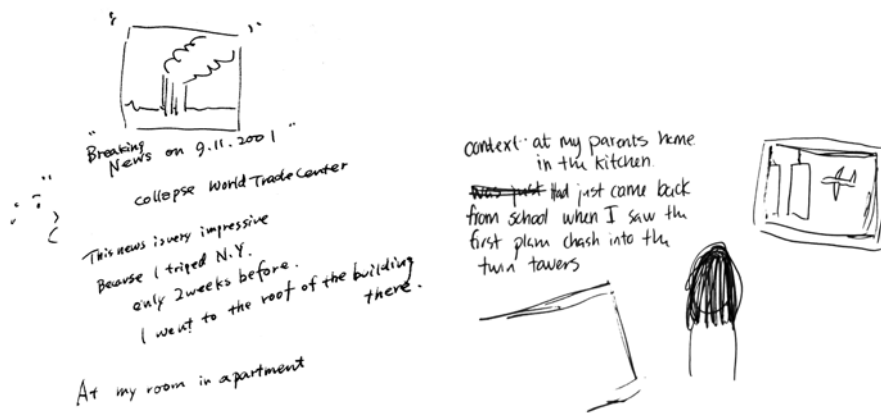 "Breaking
News on 9.11.2001"
collapse World Trade Center
This news is very impressive
Because I triped N.Y.
only 2 weeks before.
I went to the roof of the building
there.
At my room in apartment
context: at my parents home
in the kitchen.
was just Had just came back
from school when I saw the
first plam chash into the
twin towers